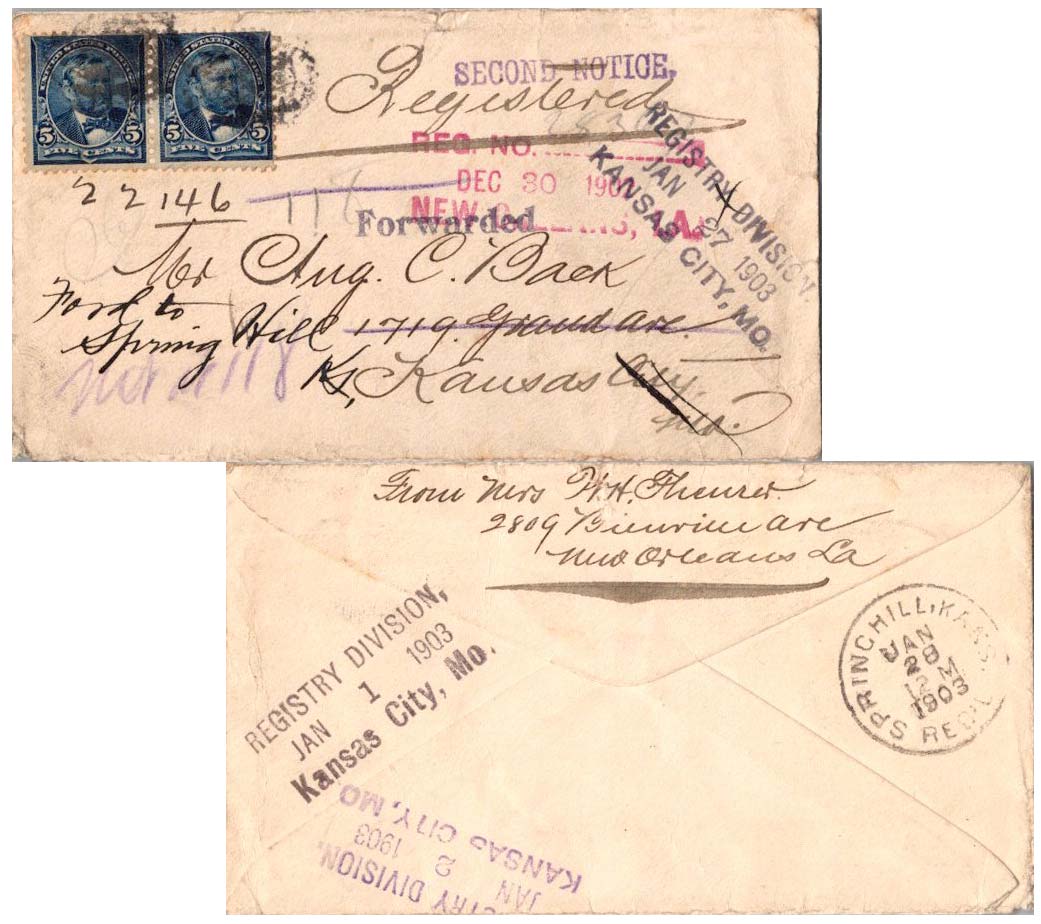 UNITED STATES POSTAGE
5 5
FIVE CENTS
UNITED STATES POSTAGE
5 5
FIVE CENTS
SECOND NOTICE,
Registered
REG. NO.
DEC 30
NEW ORLEANS, LA.
REGISTRY DIVISION.
JAN 27 1903
KANSAS CITY, MO.
22146
118
Forwarded
Mr Aug. C. Back
Ford to
Spring Hill
Ks,
1719. Grand ave.
Kansas City.
Mo.
118
From Mrs W.H. Theurer.
2809 Bienville ave
New Orleans La
REGISTRY DIVISION,
JAN 1 1903
Kansas City, Mo.
SPRINGHILL, KANS.
JAN
28
12 M
1903
REC'D
TRY DIVISION.
JAN 2 1903
KANSAS CITY, MO